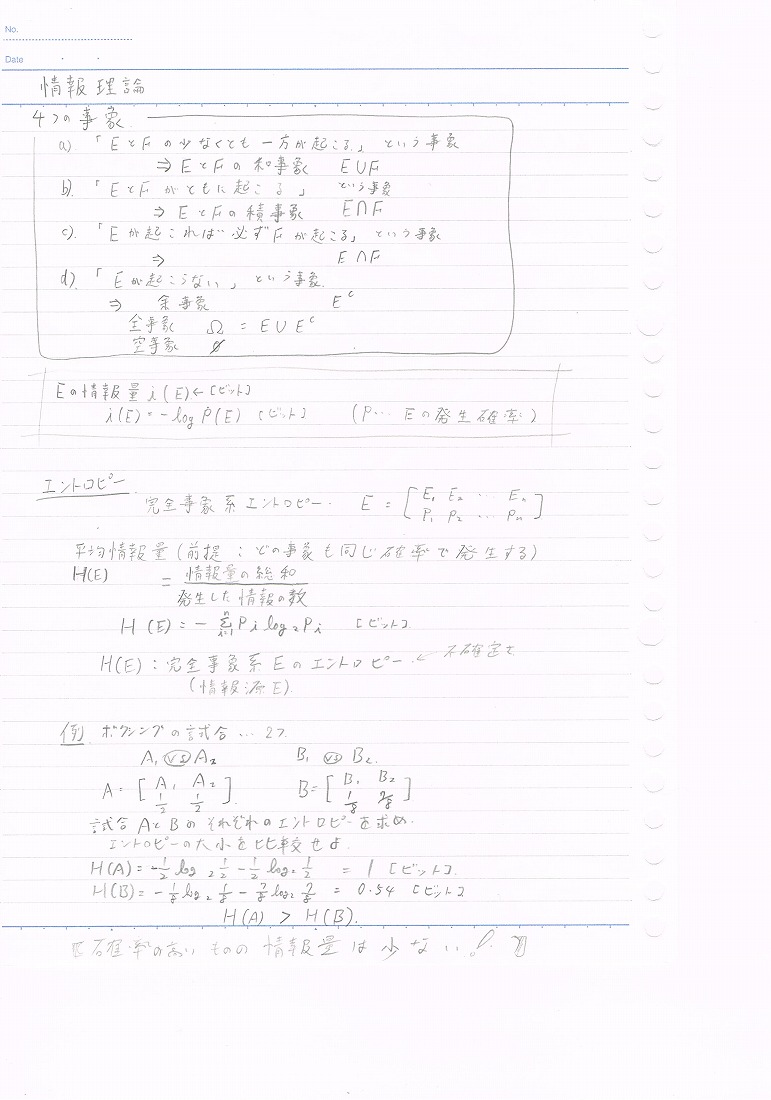 No.
Date
情報理論
4つの事象
a). 「EとFの少なくとも一方が起こる」という事象
⇒ EとFの和事象 E∪F
b). 「EとFがともに起こる」という事象
⇒ EとFの積事象 E∩F
c). 「Eが起これば必ずFが起こる」という事象
⇒ E∩F
d). 「Eが起こらない」という事象
⇒ 余事象 E^c
全事象 Ω = E∪E^c
空事象 φ
Eの情報量 i(E)←[ビット]
i(E)=-log P(E) [ビット] (P... Eの発生確率)
エントロピー
完全事象系エントロピー. E = [E₁ E₂ … Eₙ
P₁ P₂ … Pₙ]
平均情報量(前提:どの事象も同じ確率で発生する)
H(E) = 情報量の総和
発生した情報の数
H(E)=-Σ[i=1→n] Pi log₂Pi [ビット]
H(E):完全事象系Eのエントロピー.←不確定さ
(情報源E).
例 ボクシングの試合…2つ.
A₁ vs A₂ B₁ vs B₂.
A=[A₁ A₂ B=[B₁ B₂
1/2 1/2]. 1/8 7/8]
試合AとBのそれぞれのエントロピーを求め.
エントロピーの大小を比較せよ.
H(A)=-1/2 log₂ 1/2 - 1/2 log₂ 1/2 = 1 [ビット].
H(B)=-1/8 log₂ 1/8 - 7/8 log₂ 7/8 = 0.54 [ビット]
H(A) > H(B).
確率の高いものの情報量は少ない!